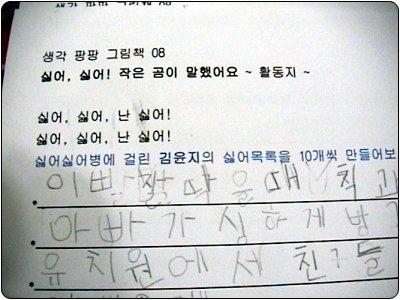 생각 팡팡 그림책 08
싫어, 싫어! 작은 곰이 말했어요 ~ 활동지 ~
싫어, 싫어, 난 싫어!
싫어, 싫어, 난 싫어!
싫어싫어병에 걸린 김윤지의 싫어목록을 10개씩 만들어보
이빨 닦을때 칙
아빠가 심하게
유치원에서 친구들